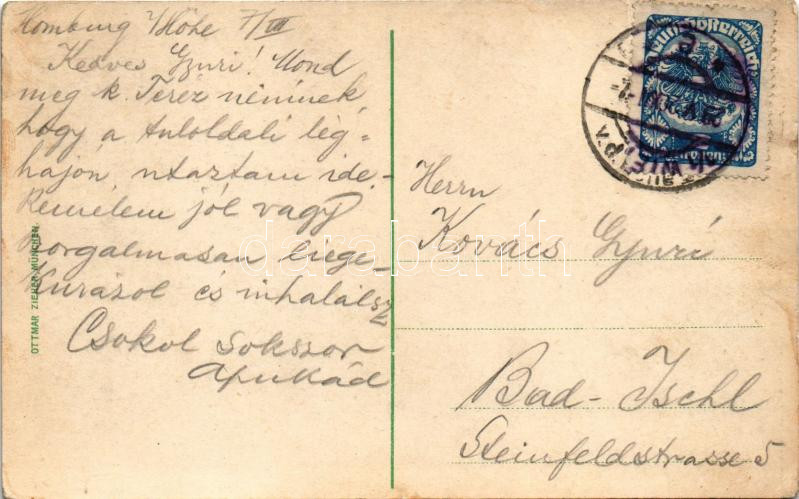 Homburg v/Höhe 7/VII
Kedves Gyuri! Mond
meg k. Teréz néninek,
hogy a tuloldali lég-
hajon utaztam ide.
Remélem jól vagy
szorgalmasan liege-
kurázol és inhalálsz
Csokol sokszor
Apukád
OTTMAR ZIEHER, MÜNCHEN.
Herrn
Kovács Gyuri
Bad-Ischl
Steinfeldstrasse 5
WIEN
darabanth